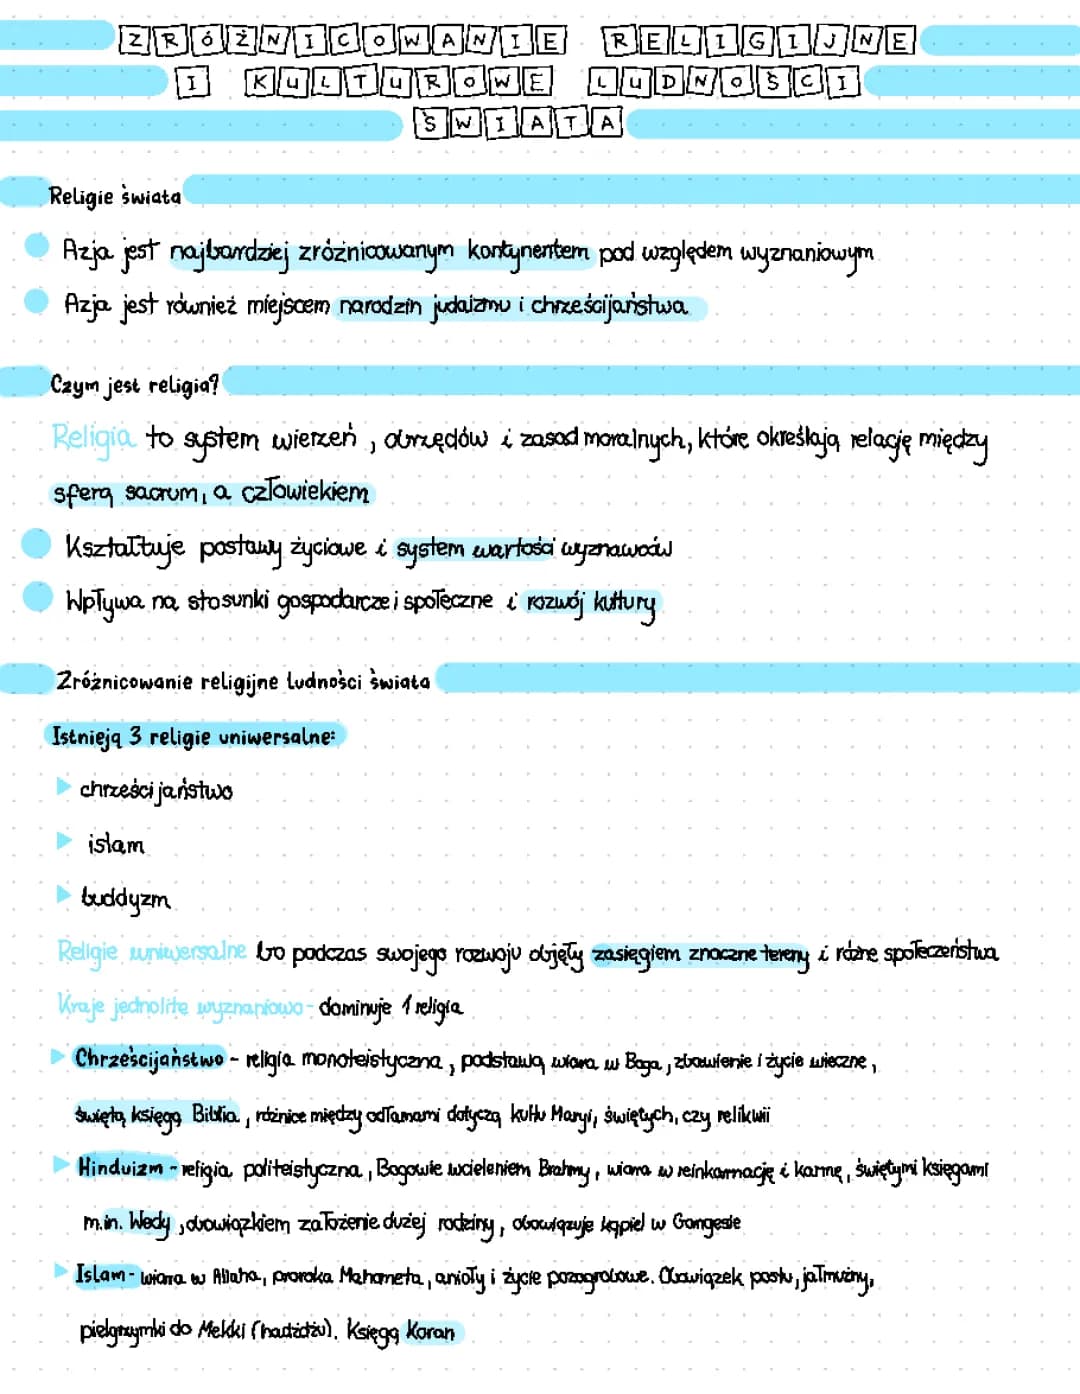 ZRÓŻNICOWANIE RELIGIJNE
I KULTUROWE LUDNOŚCI
ŚWIATA
Religie świata
Azja jest najbardziej zróżnicowanym kontynentem pod względem wyznaniowym
Azja jest również miejscem narodzin judaizmu i chrześcijaństwa
Czym jest religia?
Religia to system wierzeń, obrzędów i zasad moralnych, które określają relację między
sferą sacrum, a człowiekiem
Kształtuje postawy życiowe i system wartości wyznawców
Wpływa na stosunki gospodarcze i społeczne i rozwój kultury
Zróżnicowanie religijne ludności świata
Istnieją 3 religie uniwersalne:
chrześcijaństwo
islam
buddyzm
Religie uniwersalne bo podczas swojego rozwoju objęły zasięgiem znaczne tereny i różne społeczeństwa
Kraje jednolite wyznaniowo - dominuje 1 religia
Chrześcijaństwo - religia monoteistyczna, podstawą wiara w Boga, zbawienie i życie wieczne,
świętą księgą Biblia, różnice między odłamami dotyczą kultu Maryi, świętych, czy relikwii
Hinduizm - religia politeistyczna, Bogowie wcieleniem Brahmy, wiara w reinkarnację i karmę, świętymi księgami
m.in. Wedy, obowiązkiem założenie dużej rodziny, obowiązuje kąpiel w Gangesie
Islam - wiara w Allaha, proroka Mahometa, anioły i życie pozagrobowe. Obowiązek postu, jałmużny,
pielgrzymki do Mekki (hadżdżu). Księgą Koran